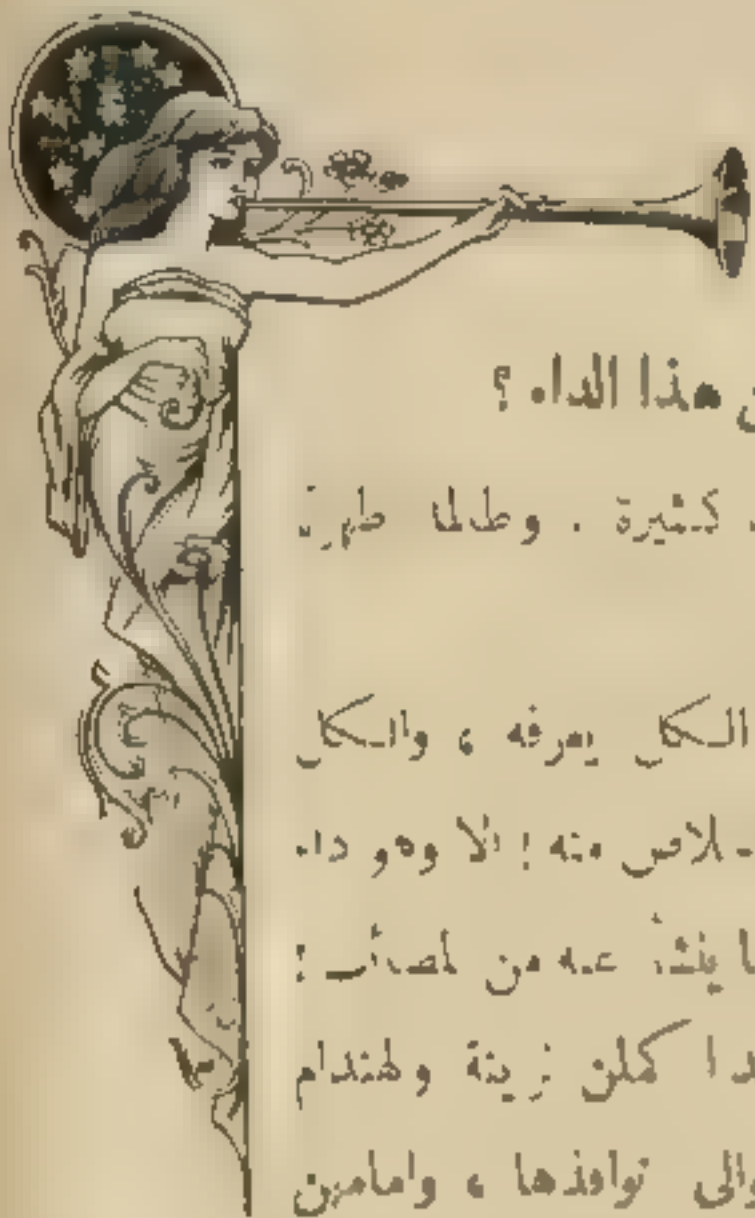 هذا الداء ؟
كثيرة . وطالما
الكل يعرفه ، والكل
منه ! الا وهو داء
ينشأ عنه من لمصائب :
كملن زينة ولهندام
والى نوافذها ، وامامهن